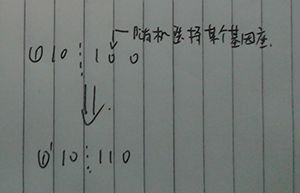 随机选择某个基因座.
① 10 ┊ 1 0 0
①' 10 ┊ 1 1 0